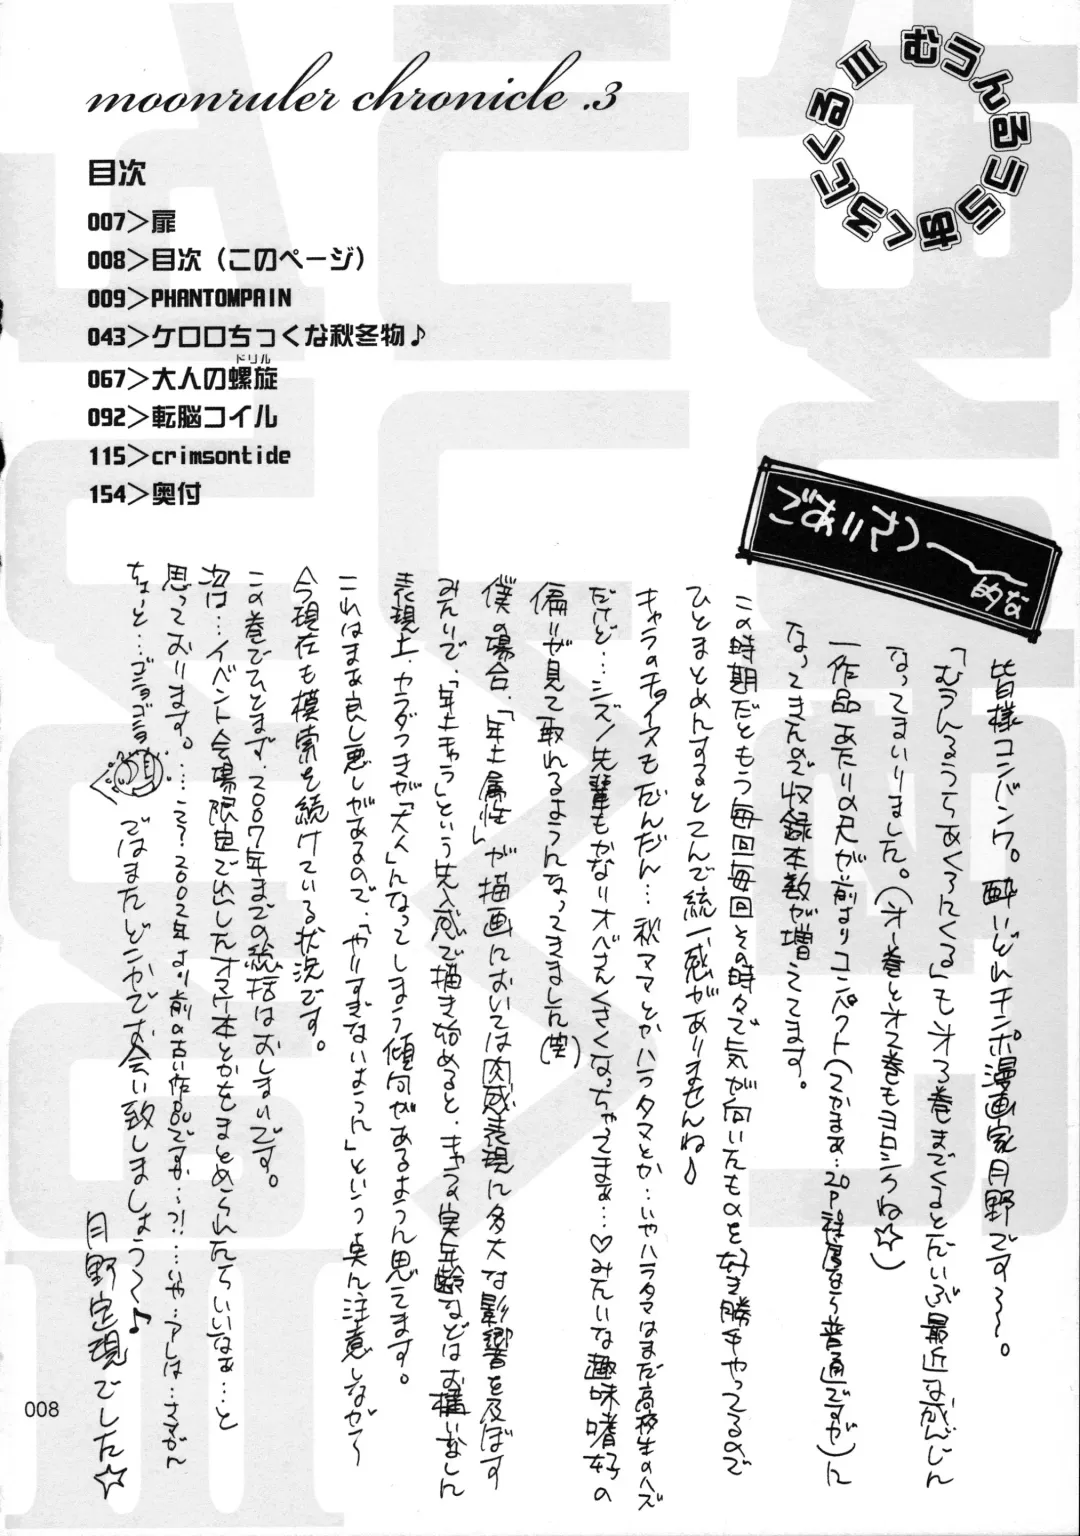 moonruler chronicle .3
むうんるうらあくろにくるIII
目次
007>扉
008>目次（このページ）
009>PHANTOMPAIN
043>ケロロちっくな秋冬物♪
067>大人の螺旋
ドリル
092>転脳コイル
115>crimsontide
154>奥付
ごあいさつ〜
的な
皆様コンバンワ。酔いどれチンポ漫画家月野です〜〜。
「むうんるうらあくろにくる」もオ3巻までくるとだいぶ最近なかんじに
なってまいりました。（オ1巻とオ2巻もヨロシクね☆）
一作品あたりの尺が前よりコンパクト（てかまぁ…20P程度なら普通ですが）に
なってきたので収録本数が増えてます。
この時期だともう毎回毎回その時々で気が向いたものを好き勝手やってるので
ひとまとめにするとてんで統一感がありませんね♪
キャラのチョイスもだんだん…秋ママとかハラタマとか…いやハラタマはまだ高校生のハズ
だけど…シズノ先輩もかなりオバさんくさくなっちゃってまぁ…♡みたいな趣味嗜好の
偏りが見て取れるようになってきました（笑）
僕の場合、「年上属性」が描画においては肉感表現に多大な影響を及ぼす
みたいで、「年上キャラ」という先入感で描き始めると、キャラの実年齢などはお構いなしに
表現上、カラダつきが「大人」になってしまう傾向があるように思えます。
これはまぁ良し悪しがあるので、「やりすぎないように」という点に注意しながら
今現在も模索を続けている状況です。
この巻でひとまず、2007年までの総括はおしまいです。
次は…イベント会場限定で出したオマケ本とかをまとめられたらいいなぁ…と
思っております。……え？2002年より前の古い作品ですか…?!…いや…アレは…さすがに
ちょーと…ゴニョゴニョ
ではまたどこかでお会い致しましょう〜♪
月野定規でした☆
008